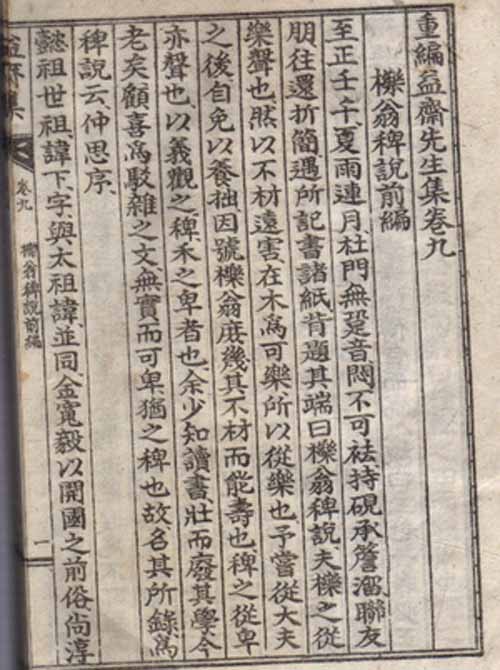 重編益齋先生集卷九
櫟翁稗說前編
至正壬午、夏雨連月、杜門無跫音、悶不可祛、持硯承簷溜、聯友
朋往還折簡、遇所記書諸紙背、題其端曰櫟翁稗說、夫櫟之從
樂聲也、然以不材遠害、在木爲可樂、所以從樂也、予嘗從大夫
之後、自免以養拙、因號櫟翁、庶幾其不材而能壽也、稗之從卑
亦聲也、以義觀之、稗禾之卑者也、余少知讀書、壯而廢其學、今
老矣、顧喜爲駁雜之文、無實而可卑、猶之稗也、故名其所錄、爲
稗說云、仲思序、
懿祖世祖、諱下、字、與太祖諱、並同、金寬毅、以開國之前、俗尚淳
益齋集
卷九
櫟翁稗說前編
一